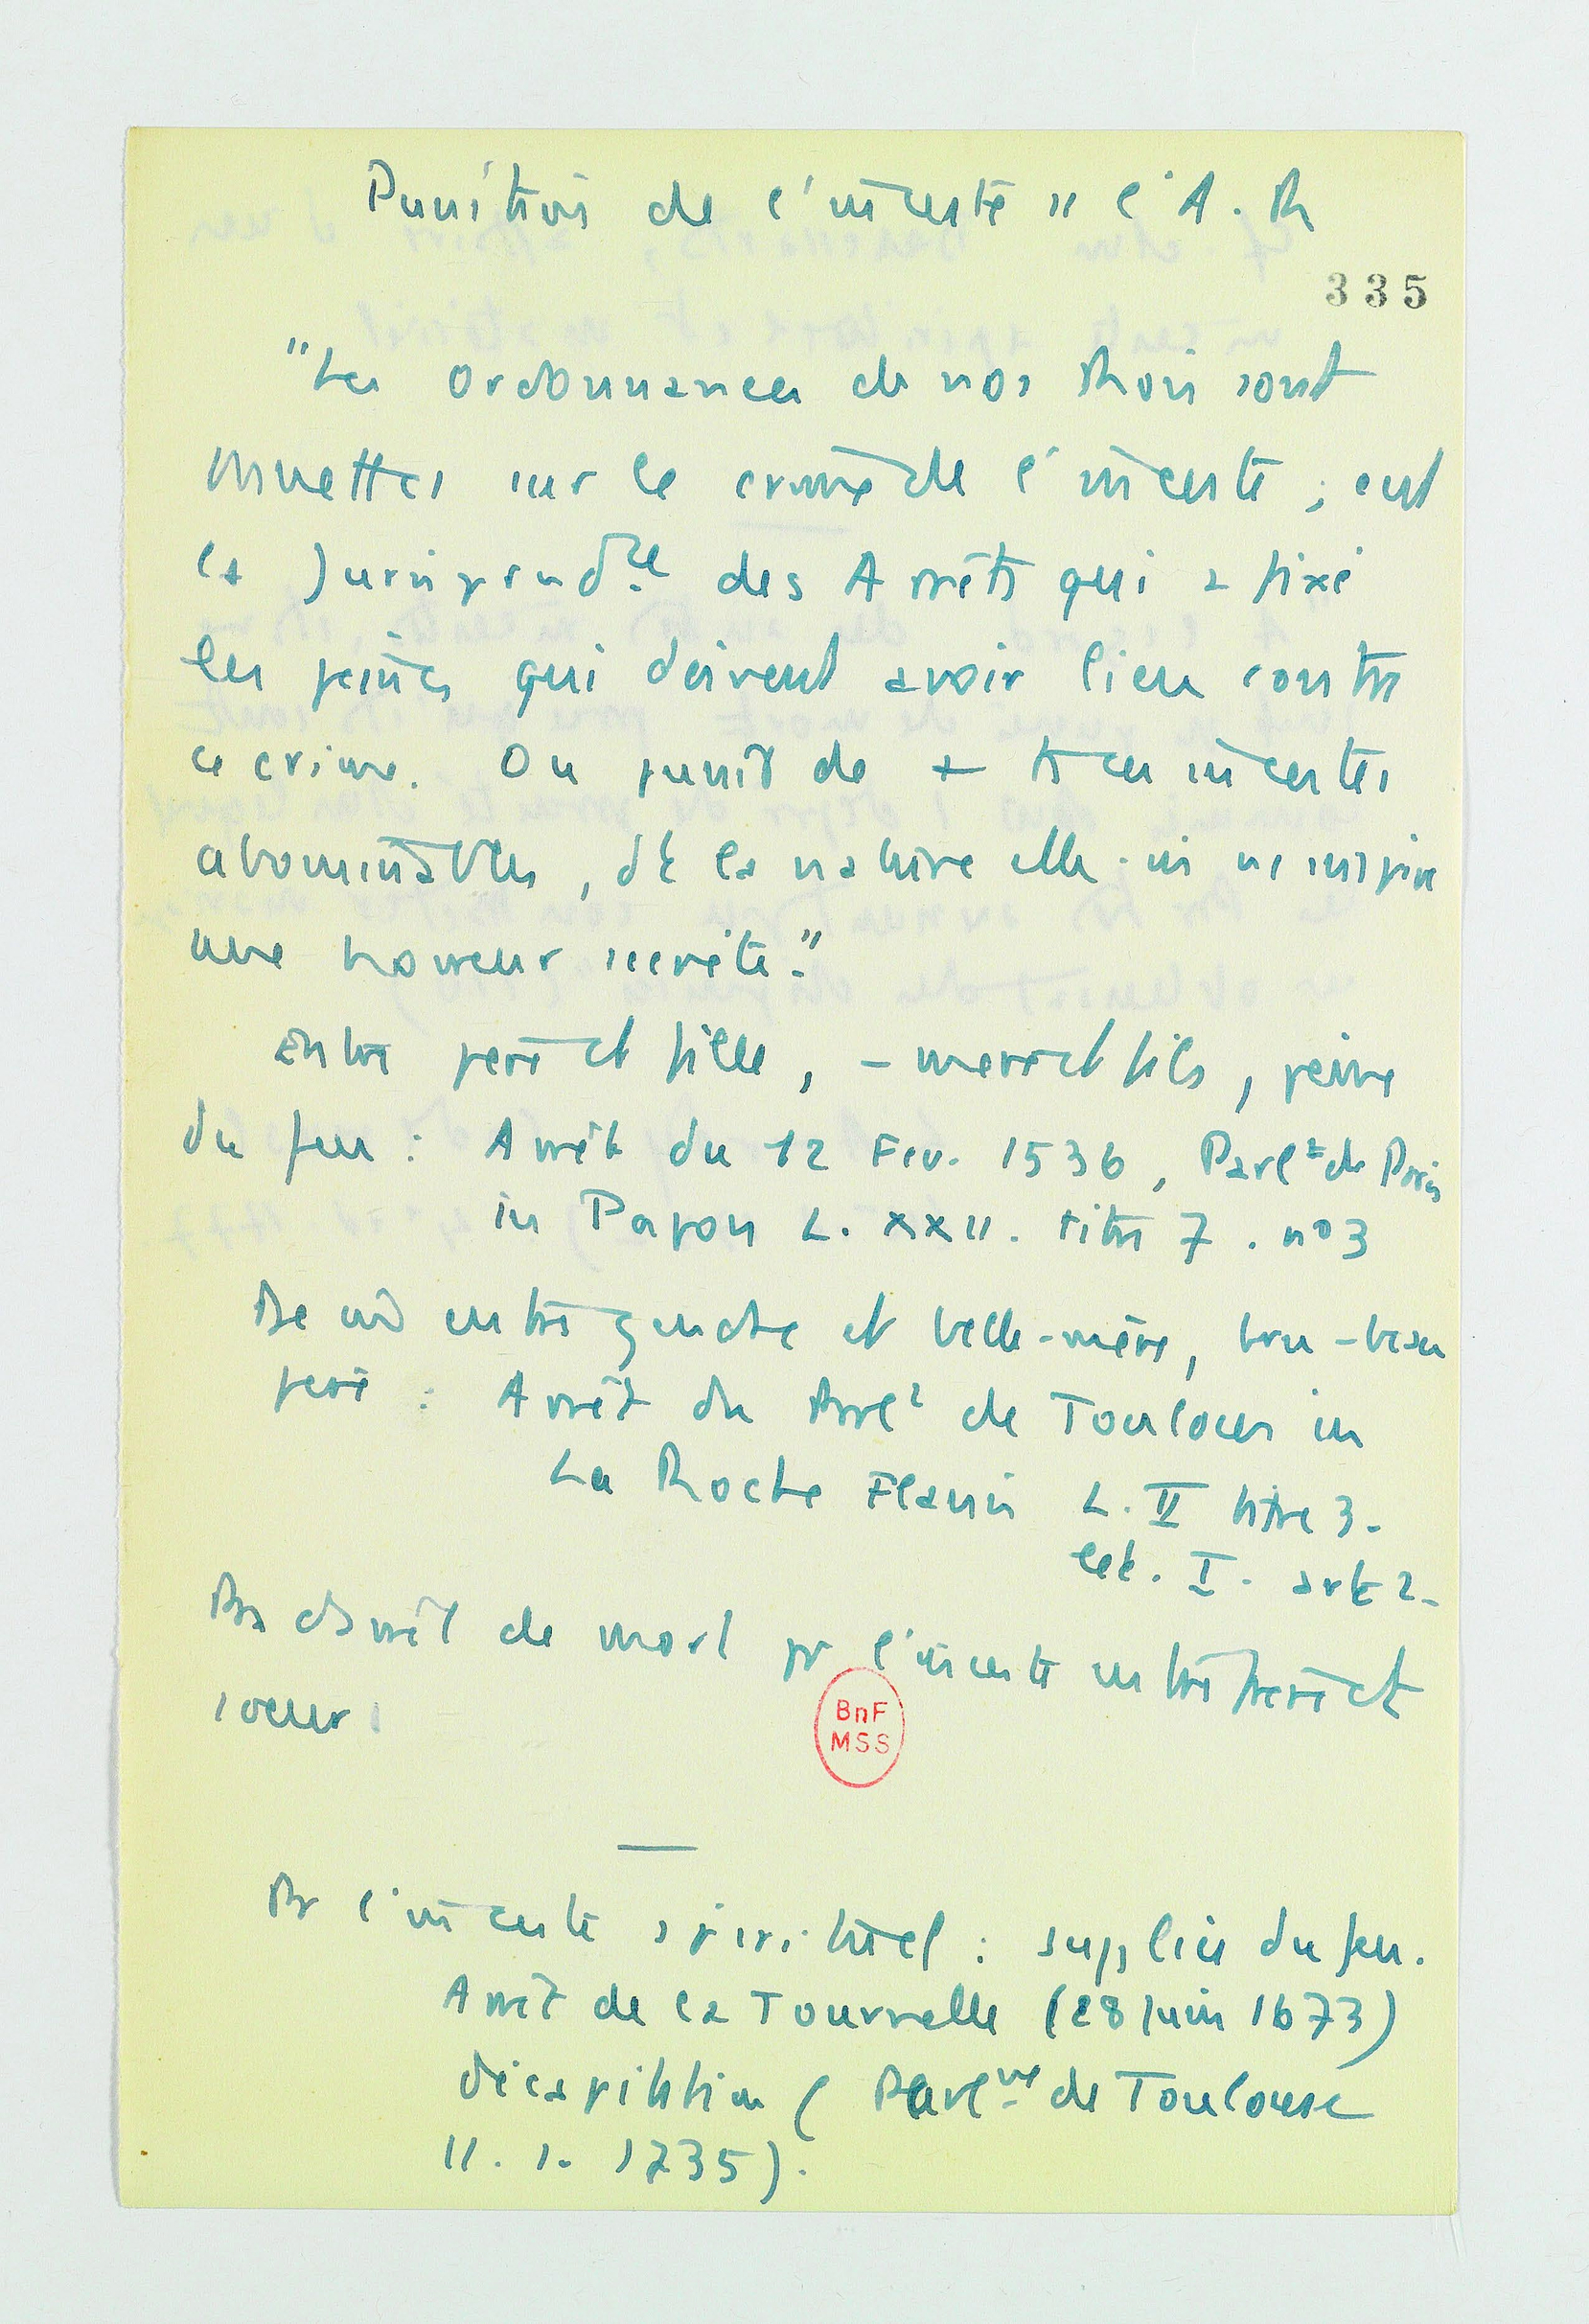 Punition de l'inceste ss l'A. R
335
"Les ordonnances de nos Rois sont
muettes sur le crime de l'inceste ; c'est
la Jurisprud.ce des Arrêts qui a fixé
les peines qui doivent avoir lieu contre
ce crime. On punit de + ts ces incestes
abominables, dt la nature elle-m ns inspire
une horreur secrète."
Entre père et fille, - mère et fils, peine
du feu : Arrêt du 12 Fev. 1536, Parlt de Paris
in Papon L. XXII. titre 7. no 3
De m entre gendre et belle-mère, bru - beau
père : Arrêt du Parlt de Toulouse in
La Roche Flavin L. II titre 3.
Let. I. art 2.
Pas d'arrêt de mort pr l'inceste entre frère et
soeur.
BnF
MSS
Pr l'inceste spirituel : supplice du feu.
Arrêt de la Tournelle (28 juin 1673)
décapitation (Parlme de Toulouse
11. 1. 1735).